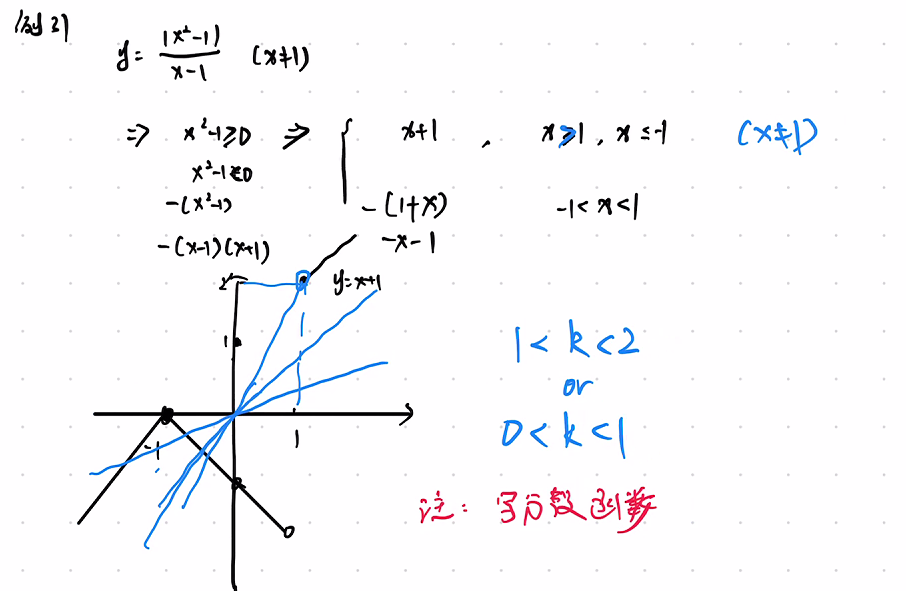 例3)
y = |x²-1| / x-1 (x≠1)
⇒ x²-1≥0 ⇒ { x+1 , x>1, x≤-1 (x≠1)
x²-1≤0
-(x²-1) -(1+x) -1<x<1
-(x-1)(x+1) -x-1
2 y=x+1
1
1<k<2
or
0<k<1
-1 1
注: 写分段函数